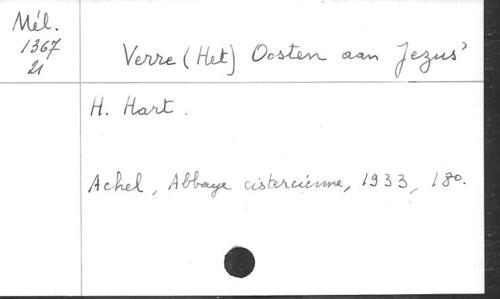 Mél.
1367
21
Verre (Het) Oosten aan Jezus'
H. Hart.
Achel, Abbaye cistercienne, 1933, 18º.